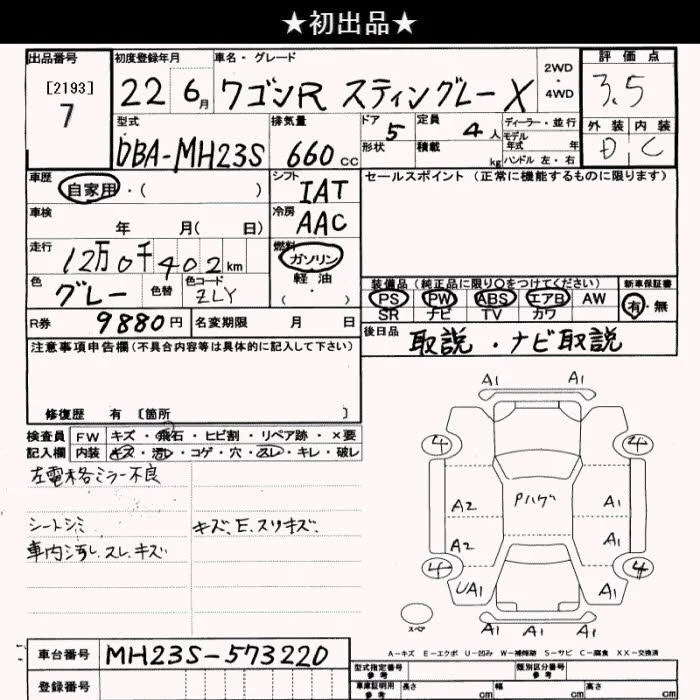 ★初出品★
出品番号 初度登録年月 車名・グレード 2WD・4WD 評価点
[2193] 7 22 6月 ワゴンR スティングレー X 3.5
型式 排気量 ドア 定員 ディーラー・並行 外装 内装
DBA-MH23S 660cc 5 4人 モデル年式 年 D C
形状 積載 kg ハンドル 左・右
車歴 シフト セールスポイント (正常に機能するものに限ります)
自家用・( ) IAT
車検 冷房
年 月( 日) AAC
走行 燃料
12万0千402km ガソリン
軽油
色 色替 色コード ・( )
グレー ZLY
装備品 (純正品に限り○をつけてください) 新車保証書
PS PW ABS エアB AW 有・無
SR ナビ TV カワ
R券 9880円 名変期限 月 日
後日品 取説・ナビ取説
注意事項申告欄(不具合内容等は具体的に記入して下さい)
修復歴 有 〔箇所 〕
検査員 FW キズ・飛石・ヒビ割・リペア跡・×要
記入欄 内装 キズ・汚レ・コゲ・穴・スレ・キレ・破レ
左電格ミラー不良
シートシミ キズ、E、スリキズ、
車内汚レ、スレ、キズ
A1 A1
4 4
A2 Pハゲ A1
A2 A1
4 4
UA1 A1
スペア A1 A1 A1
A－キズ E－エクボ U－凹み W－補修跡 S－サビ C－腐食 XX－交換済
車台番号 MH23S-573220
型式指定番号 参考 類別区分番号 参考
登録番号 車庫証明用 参考 長さ cm 幅 cm 高さ cm